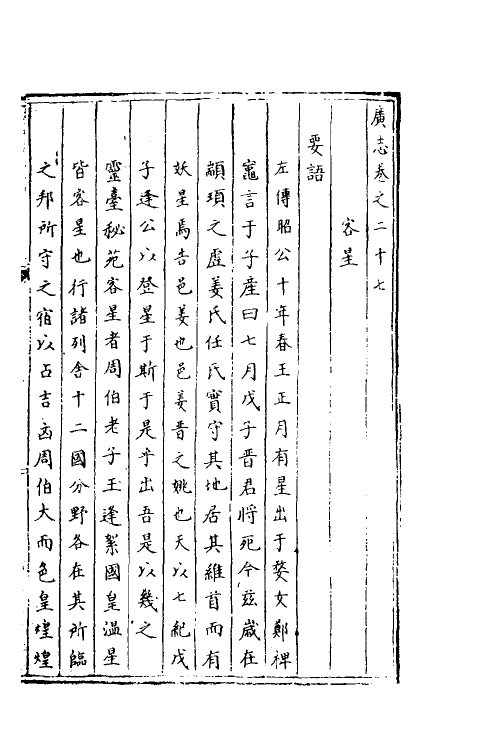 廣志卷之二十七
客星
要語
左傳昭公十年春王正月有星出于婺女鄭裨
竈言于子產曰七月戊子晋君將死今茲嵗在
顓頊之虚姜氏任氏實守其地居其維首而有
妖星焉告邑姜也邑姜晋之姚也天以七紀戊
子逢公以登星于斯于是乎出吾是以幾之
靈臺秘苑客星者周伯老子王逢絮國皇温星
皆客星也行諸列舍十二國分野各在其所臨
之邦所守之宿以占吉凶周伯大而色皇煌煌